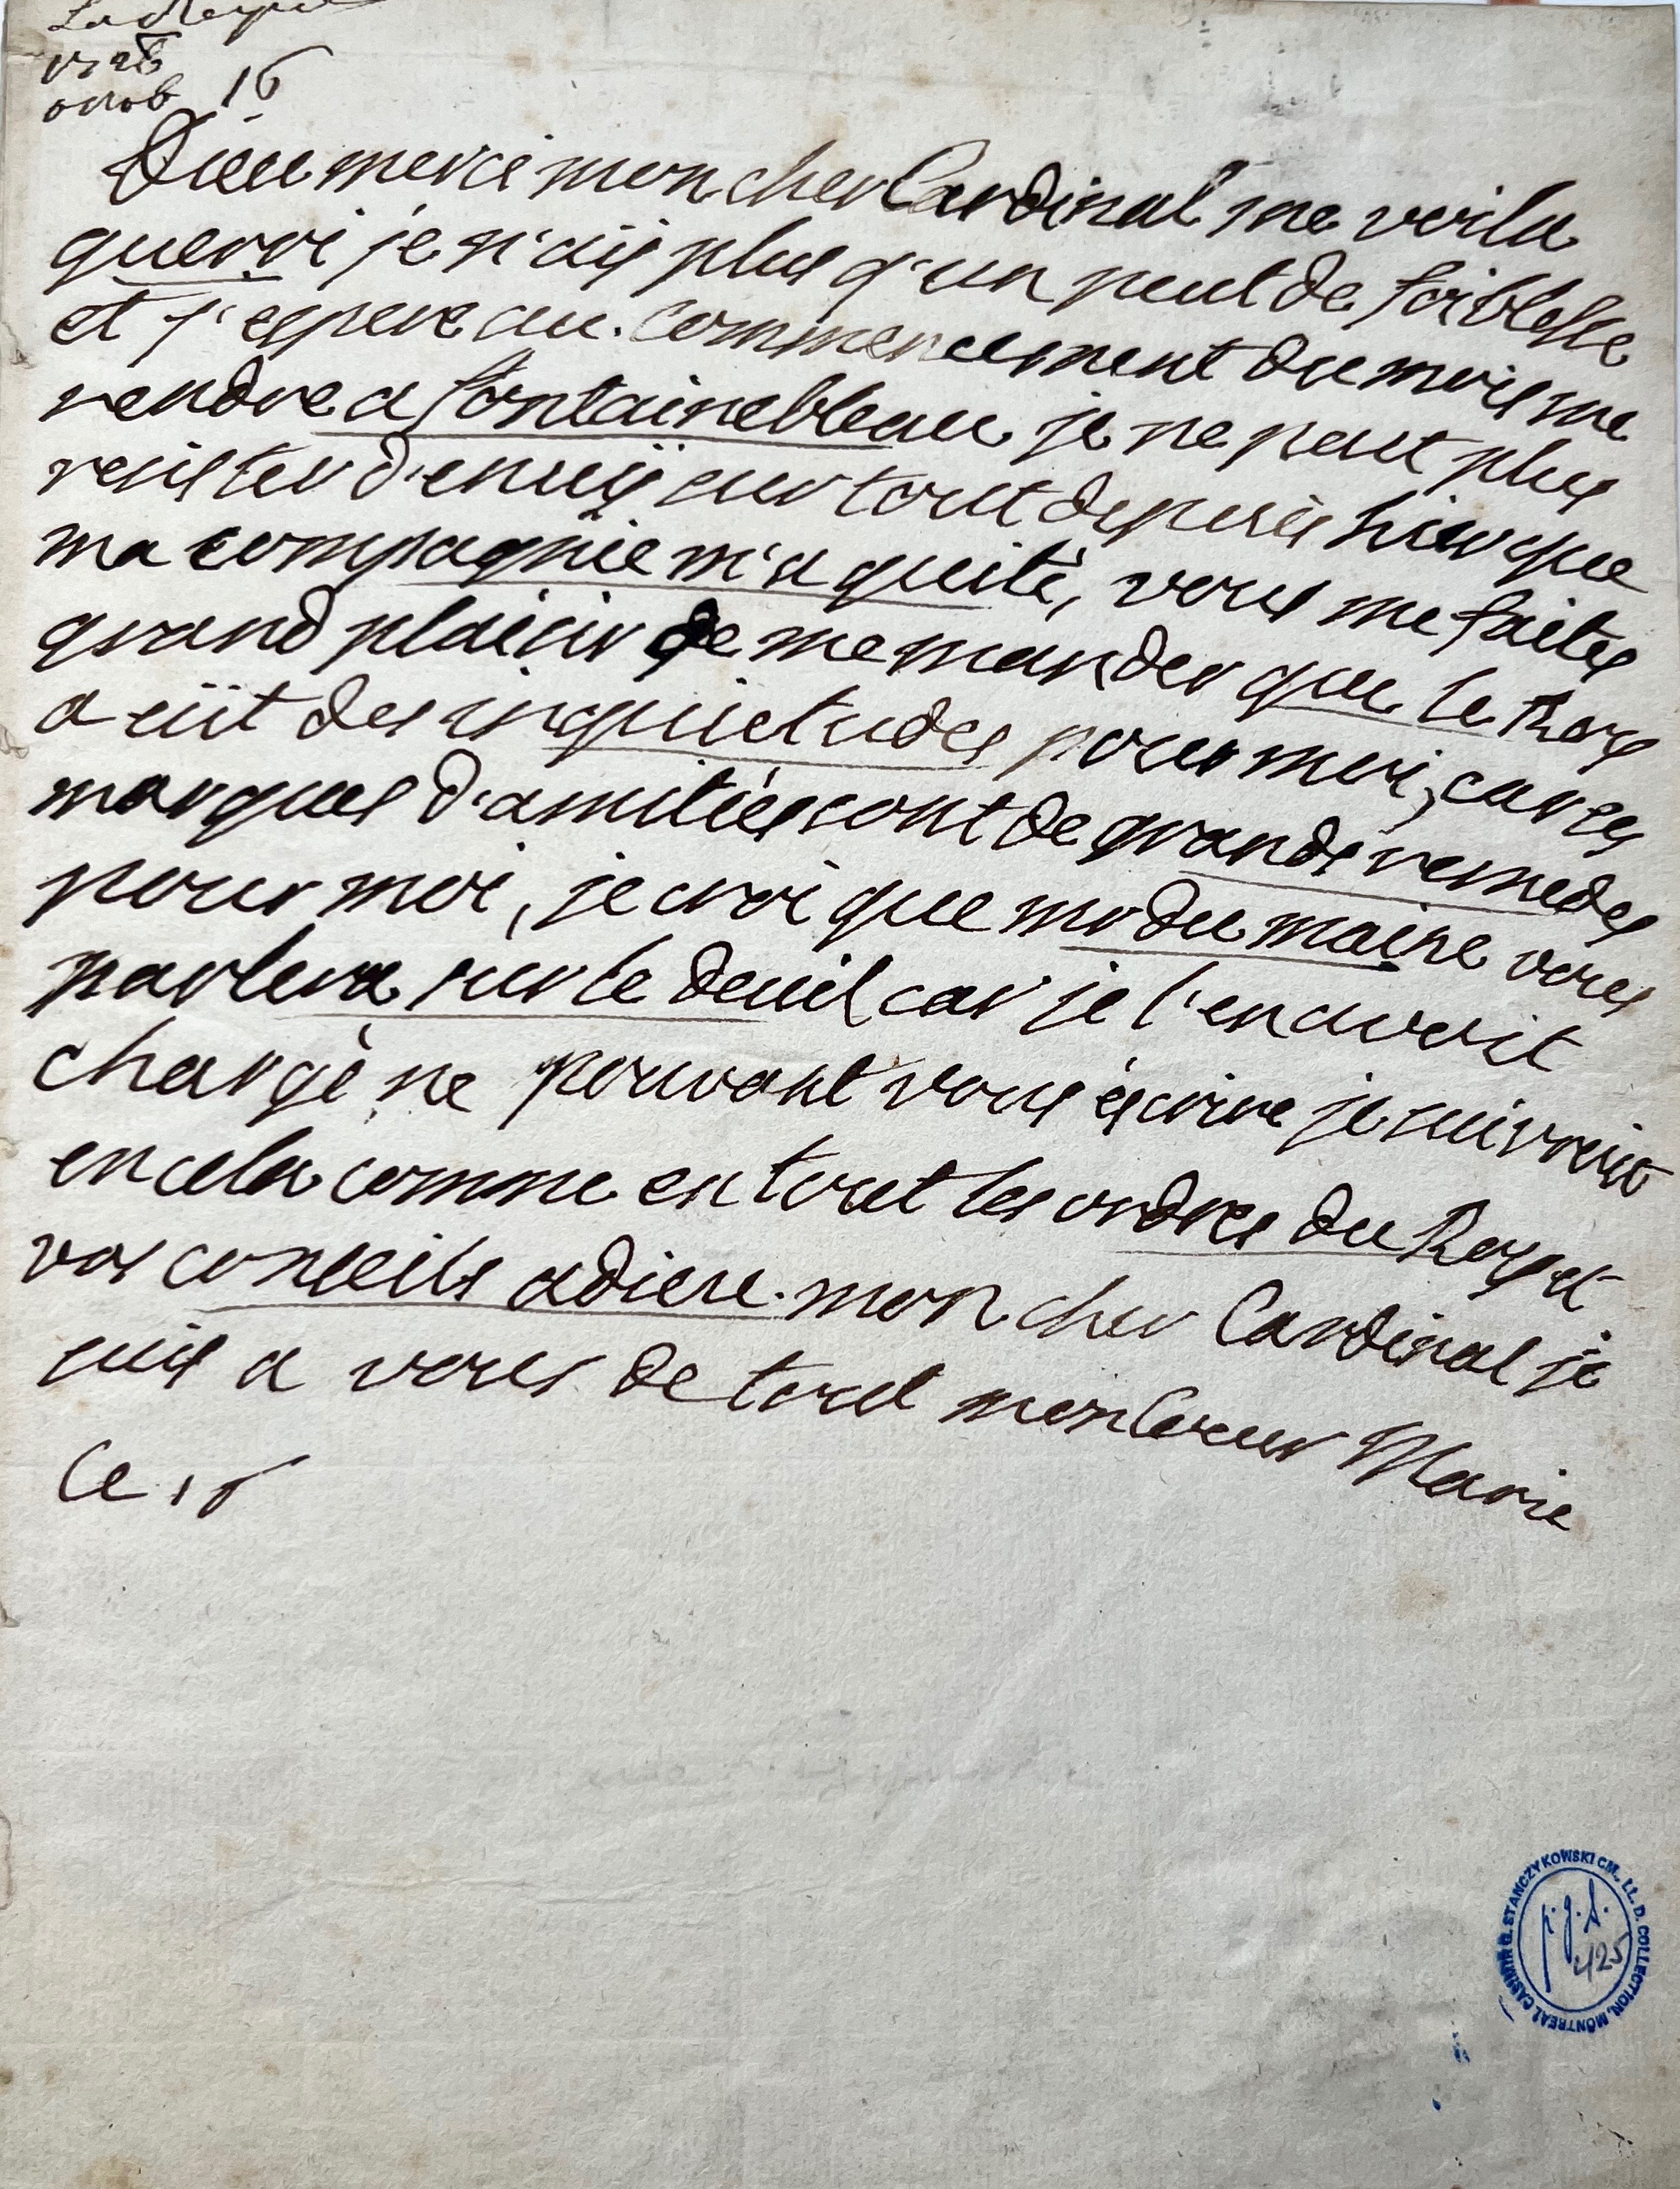 La Reyne
octob 16
Dieu merci mon cher Cardinal me voila
guerri je n'aij plus q'un peut de foiblesse
et j'espere au commencement du mois me
rendre a fontainebleau je ne peut plus
resister d'ennuij sur tout depuis hier que
ma compagnie m'a quité, vous me faites
grand plaisir de me mander que le Roy
a eüt des inquietudes pour moi, car ses
marques d'amitiés sont de grands remedes
pour moi, je croi que mr du maine vous
parlera sur le deuil car je l'en avoit
chargé ne pouvant vous écrire je suivrois
en cela comme en tout les ordres du Roy et
vos conseils adieu mon cher Cardinal je
suis a vous de tout mon Coeur Marie
Ce 16
CASIMIR G. STANCZYKOWSKI CM., LL. D. COLLECTION, MONTREAL
p.g.s.
425